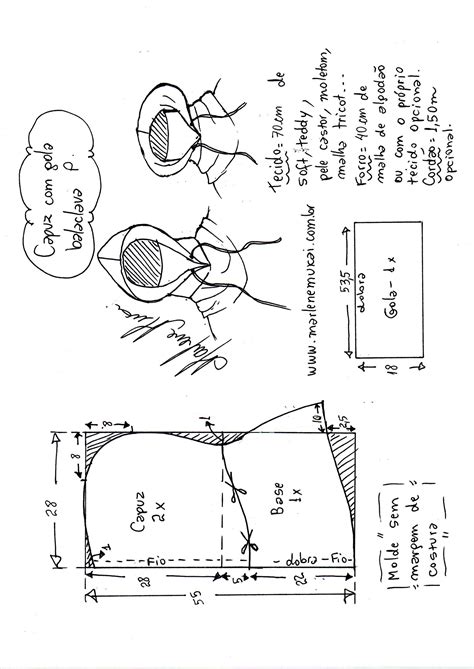 Capuz com gola
balaclava P.
Tecido=70cm de
soft, teddy,
pele castor, moletom,
malha tricot...
Forro=40cm de
malha de algodão
ou com o próprio
tecido opcional.
Cordão=1,50m
opcional.
Marlene
Mukai
www.marlenemukai.com.br
53,5
dobra
Gola-1x
18
28
8
8
1
10
2,5
Capuz
2x
Base
1x
1
Fio
dobra-Fio
28
5
22
55
Molde sem
margem de
costura